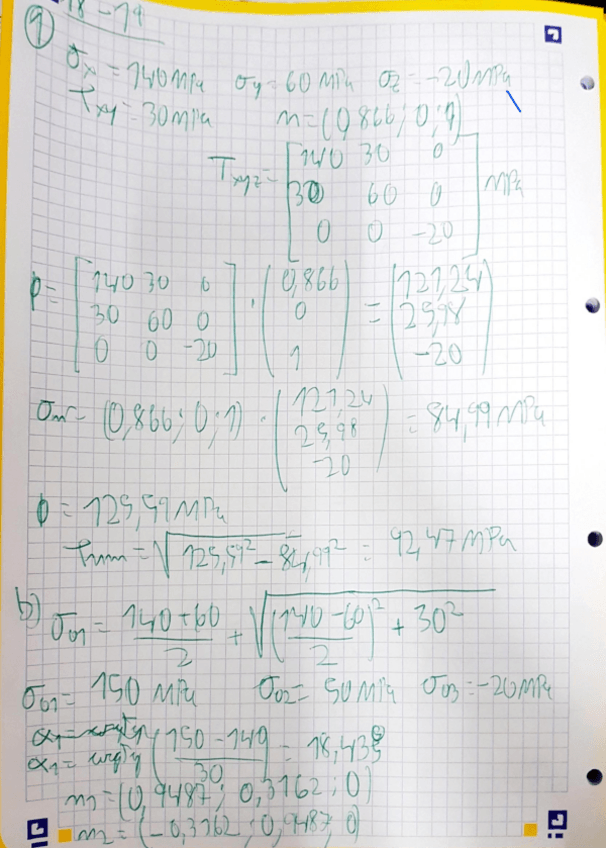 18-19
9
σx = 140 MPa σy = 60 MPa σz = -20 MPa
τxy = 30 MPa n = (0,866; 0; 1)
Txyz = [140 30 0; 30 60 0; 0 0 -20] MPa
p = [140 30 0; 30 60 0; 0 0 -20] · (0,866; 0; 1) = (121,24; 25,98; -20)
σn = (0,866; 0; 1) · (121,24; 25,98; -20) = 84,99 MPa
p = 125,59 MPa
= √(125,59² - 84,99²) = 92,47 MPa
b) σ01 = (140+60)/2 + √(((140-60)/2)² + 30²)
σ01 = 150 MPa σ02 = 50 MPa σ03 = -20 MPa
α1 =
α1 = arctg((150-140)/30) = 18,435°
n1 = (0,9487; 0,3162; 0)
n2 = (-0,3162; 0,9487; 0)